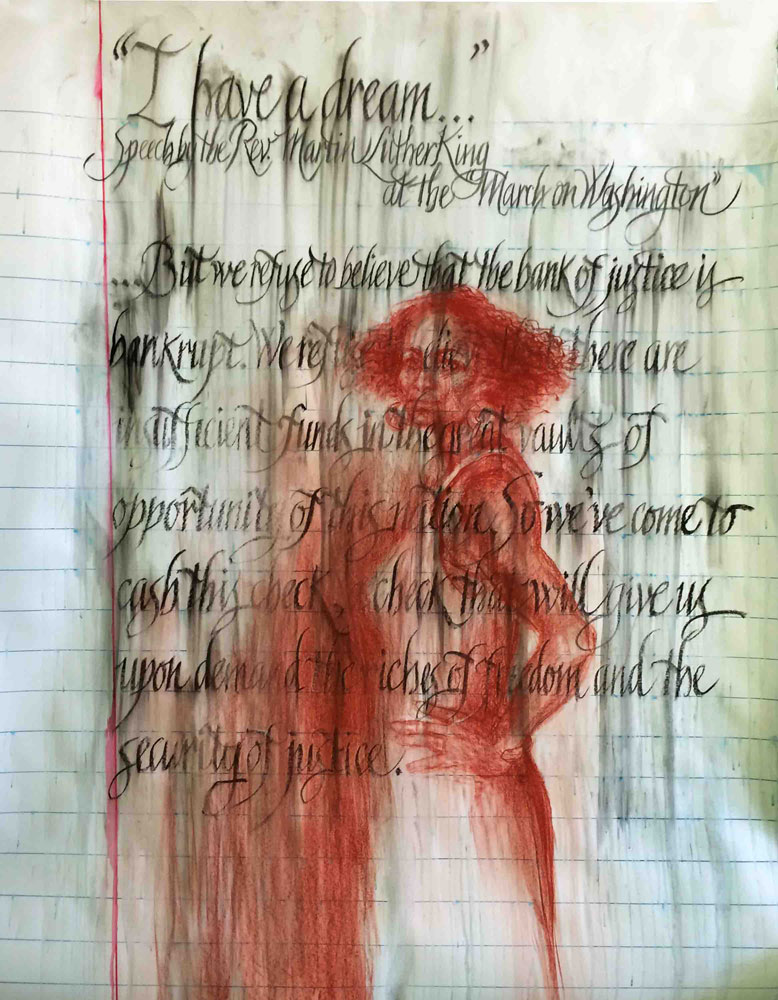 "I have a dream..."
Speech by the Rev. Martin Luther King
at the "March on Washington"
...But we refuse to believe that the bank of justice is
bankrupt. We refuse to believe that there are
insufficient funds in the great vaults of
opportunity of this nation. So we've come to
cash this check, a check that will give us
upon demand the riches of freedom and the
security of justice.